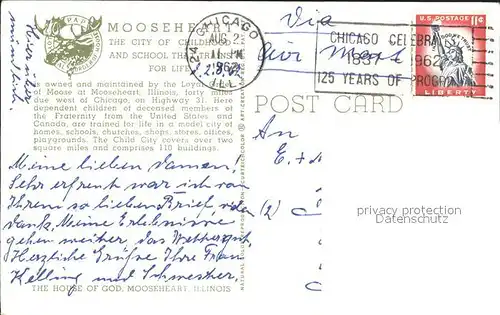 MOOSEHEART
THE CITY OF CHILDHOOD
AND SCHOOL THAT TRAINS
FOR LIFE
Is owned and maintained by the Loyal Order
of Moose at Mooseheart, Illinois, forty miles
due west of Chicago, on Highway 31. Here
dependent children of deceased members of
the Fraternity from the United States and
Canada, are trained for life in a model city of
homes, schools, churches, shops, stores, offices,
playgrounds. The Child City covers over two
square miles and comprises 110 buildings.
Meine lieben Damen!
Sehr erfreut war ich von
Ihrem so lieben Brief vielen
Dank. Meine Erlebnisse
gehen weiter, das Wetter gut,
Herzliche Grüße Ihre Frau
Kelling und Schwester.
THE HOUSE OF GOD, MOOSEHEART, ILLINOIS
CHICAGO
AUG 2
PM
1962
ILL.
2.8.62
Via
Air Mail
CHICAGO CELEBRA
1962
125 YEARS OF PROG
U.S. POSTAGE
11¢
LIBERTY
POST CARD
An
E. +
(2)
privacy protection
Datenschutz